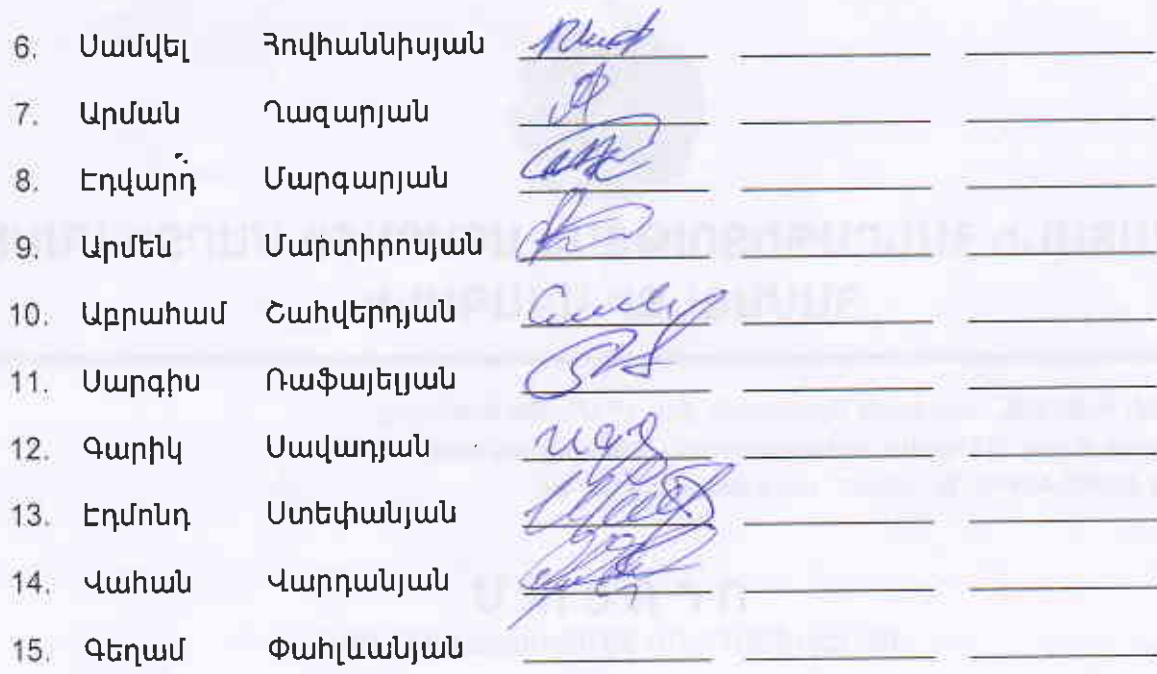 6. Սամվել Հովհաննիսյան
7. Արման Ղազարյան
8. Էդվարդ Մարգարյան
9. Արմեն Մարտիրոսյան
10. Աբրահամ Շահվերդյան
11. Սարգիս Ռաֆայելյան
12. Գարիկ Սավադյան
13. Էդմոնդ Ստեփանյան
14. Վահան Վարդանյան
15. Գեղամ Փահլևանյան